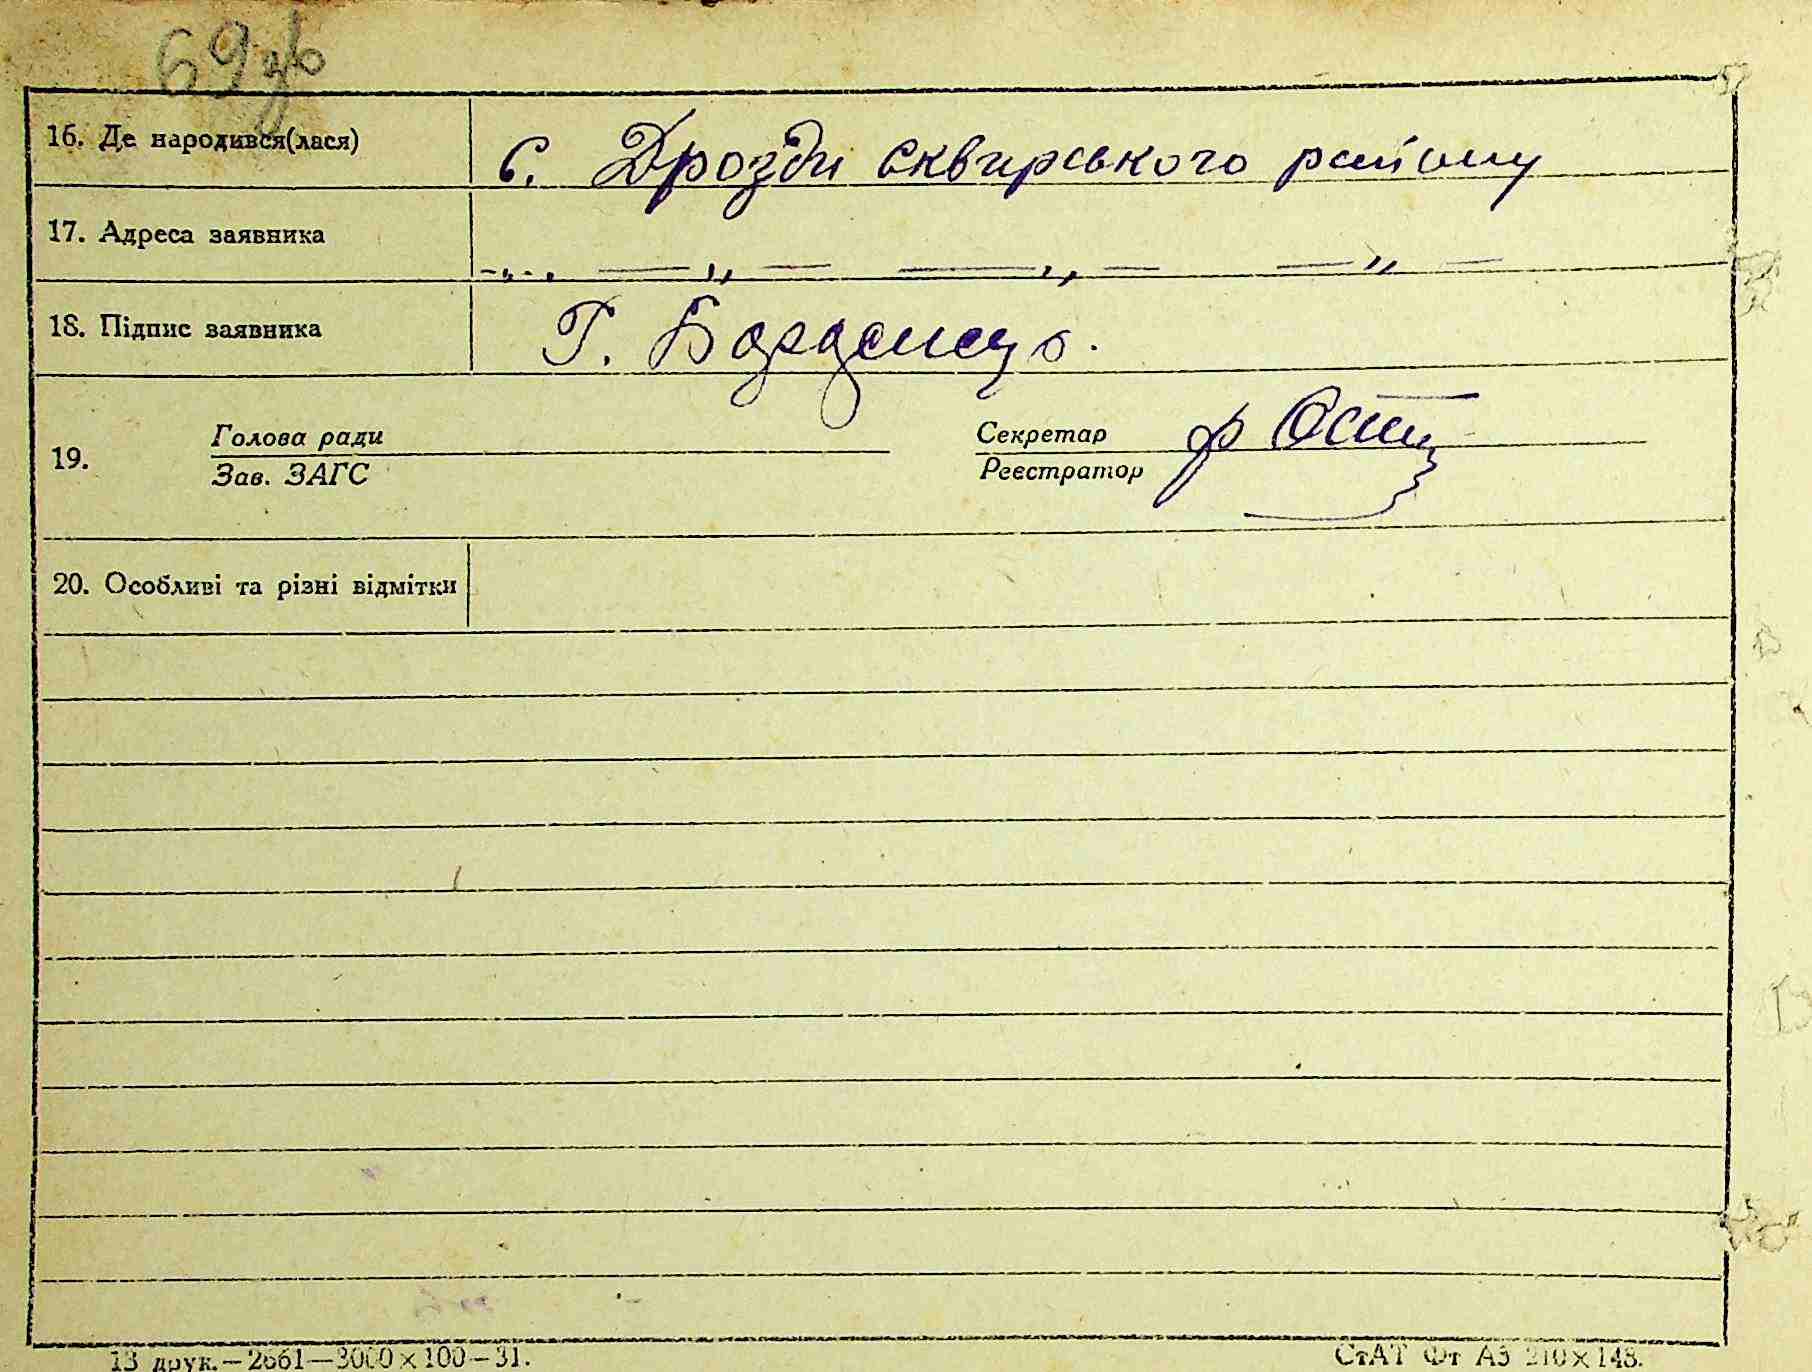 69зв
16. Де народився(лася) с. Дрозди сквирського району
17. Адреса заявника —„— —„— —„— —„—
18. Підпис заявника Г.
19. Голова ради
Зав. ЗАГС
Секретар
Реєстратор
20. Особливі та різні відмітки
13 друк.—2661—3000×100—31.
СтАТ Фт А5 210×148.